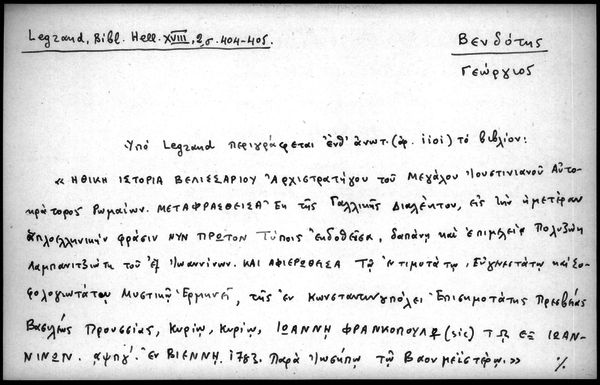 Legrand, Bibl. Hell. XVIII, 2, σ. 404-405.
Βενδότης
Γεώργιος
Ὑπὸ Legrand περιγράφεται ἔνθ' ἀνωτ. (ἀρ. 1101) τὸ βιβλίον:
« ΗΘΙΚΗ ΙΣΤΟΡΙΑ ΒΕΛΙΣΣΑΡΙΟΥ Ἀρχιστρατήγου τοῦ Μεγάλου Ἰουστινιανοῦ Αὐτο-
κράτορος Ῥωμαίων. ΜΕΤΑΦΡΑΣΘΕΙΣΑ Ἐκ τῆς Γαλλικῆς Διαλέκτου, εἰς τὴν ἡμετέραν
ἁπλοελληνικὴν φράσιν ΝΥΝ ΠΡΩΤΟΝ Τύποις Ἐκδοθεῖσα, δαπάνῃ καὶ ἐπιμελείᾳ Πολυζώη
Λαμπανιτζιώτη τοῦ ἐξ Ἰωαννίνων. ΚΑΙ ΑΦΙΕΡΩΘΕΙΣΑ Τῷ Ἐντιμοτάτῳ, Εὐγενεστάτῳ καὶ Σο-
φολογιωτάτῳ Μυστικῷ Ἑρμηνεῖ, τῆς ἐν Κωνσταντινουπόλει Ἐπισημοτάτης Πρεσβείας
Βασιλέως Προυσσίας, Κυρίῳ, Κυρίῳ, ΙΩΑΝΝῌ ΦΡΑΝΚΟΠΟΥΛῼ (sic) ΤΩ ΕΞ ΙΩΑΝ-
ΝΙΝΩΝ. αψπγ'. Ἐν ΒΙΕΝΝῌ. 1783. Παρὰ Ἰωσήπῳ τῷ Βαουμεϊστέρῳ. » ./.